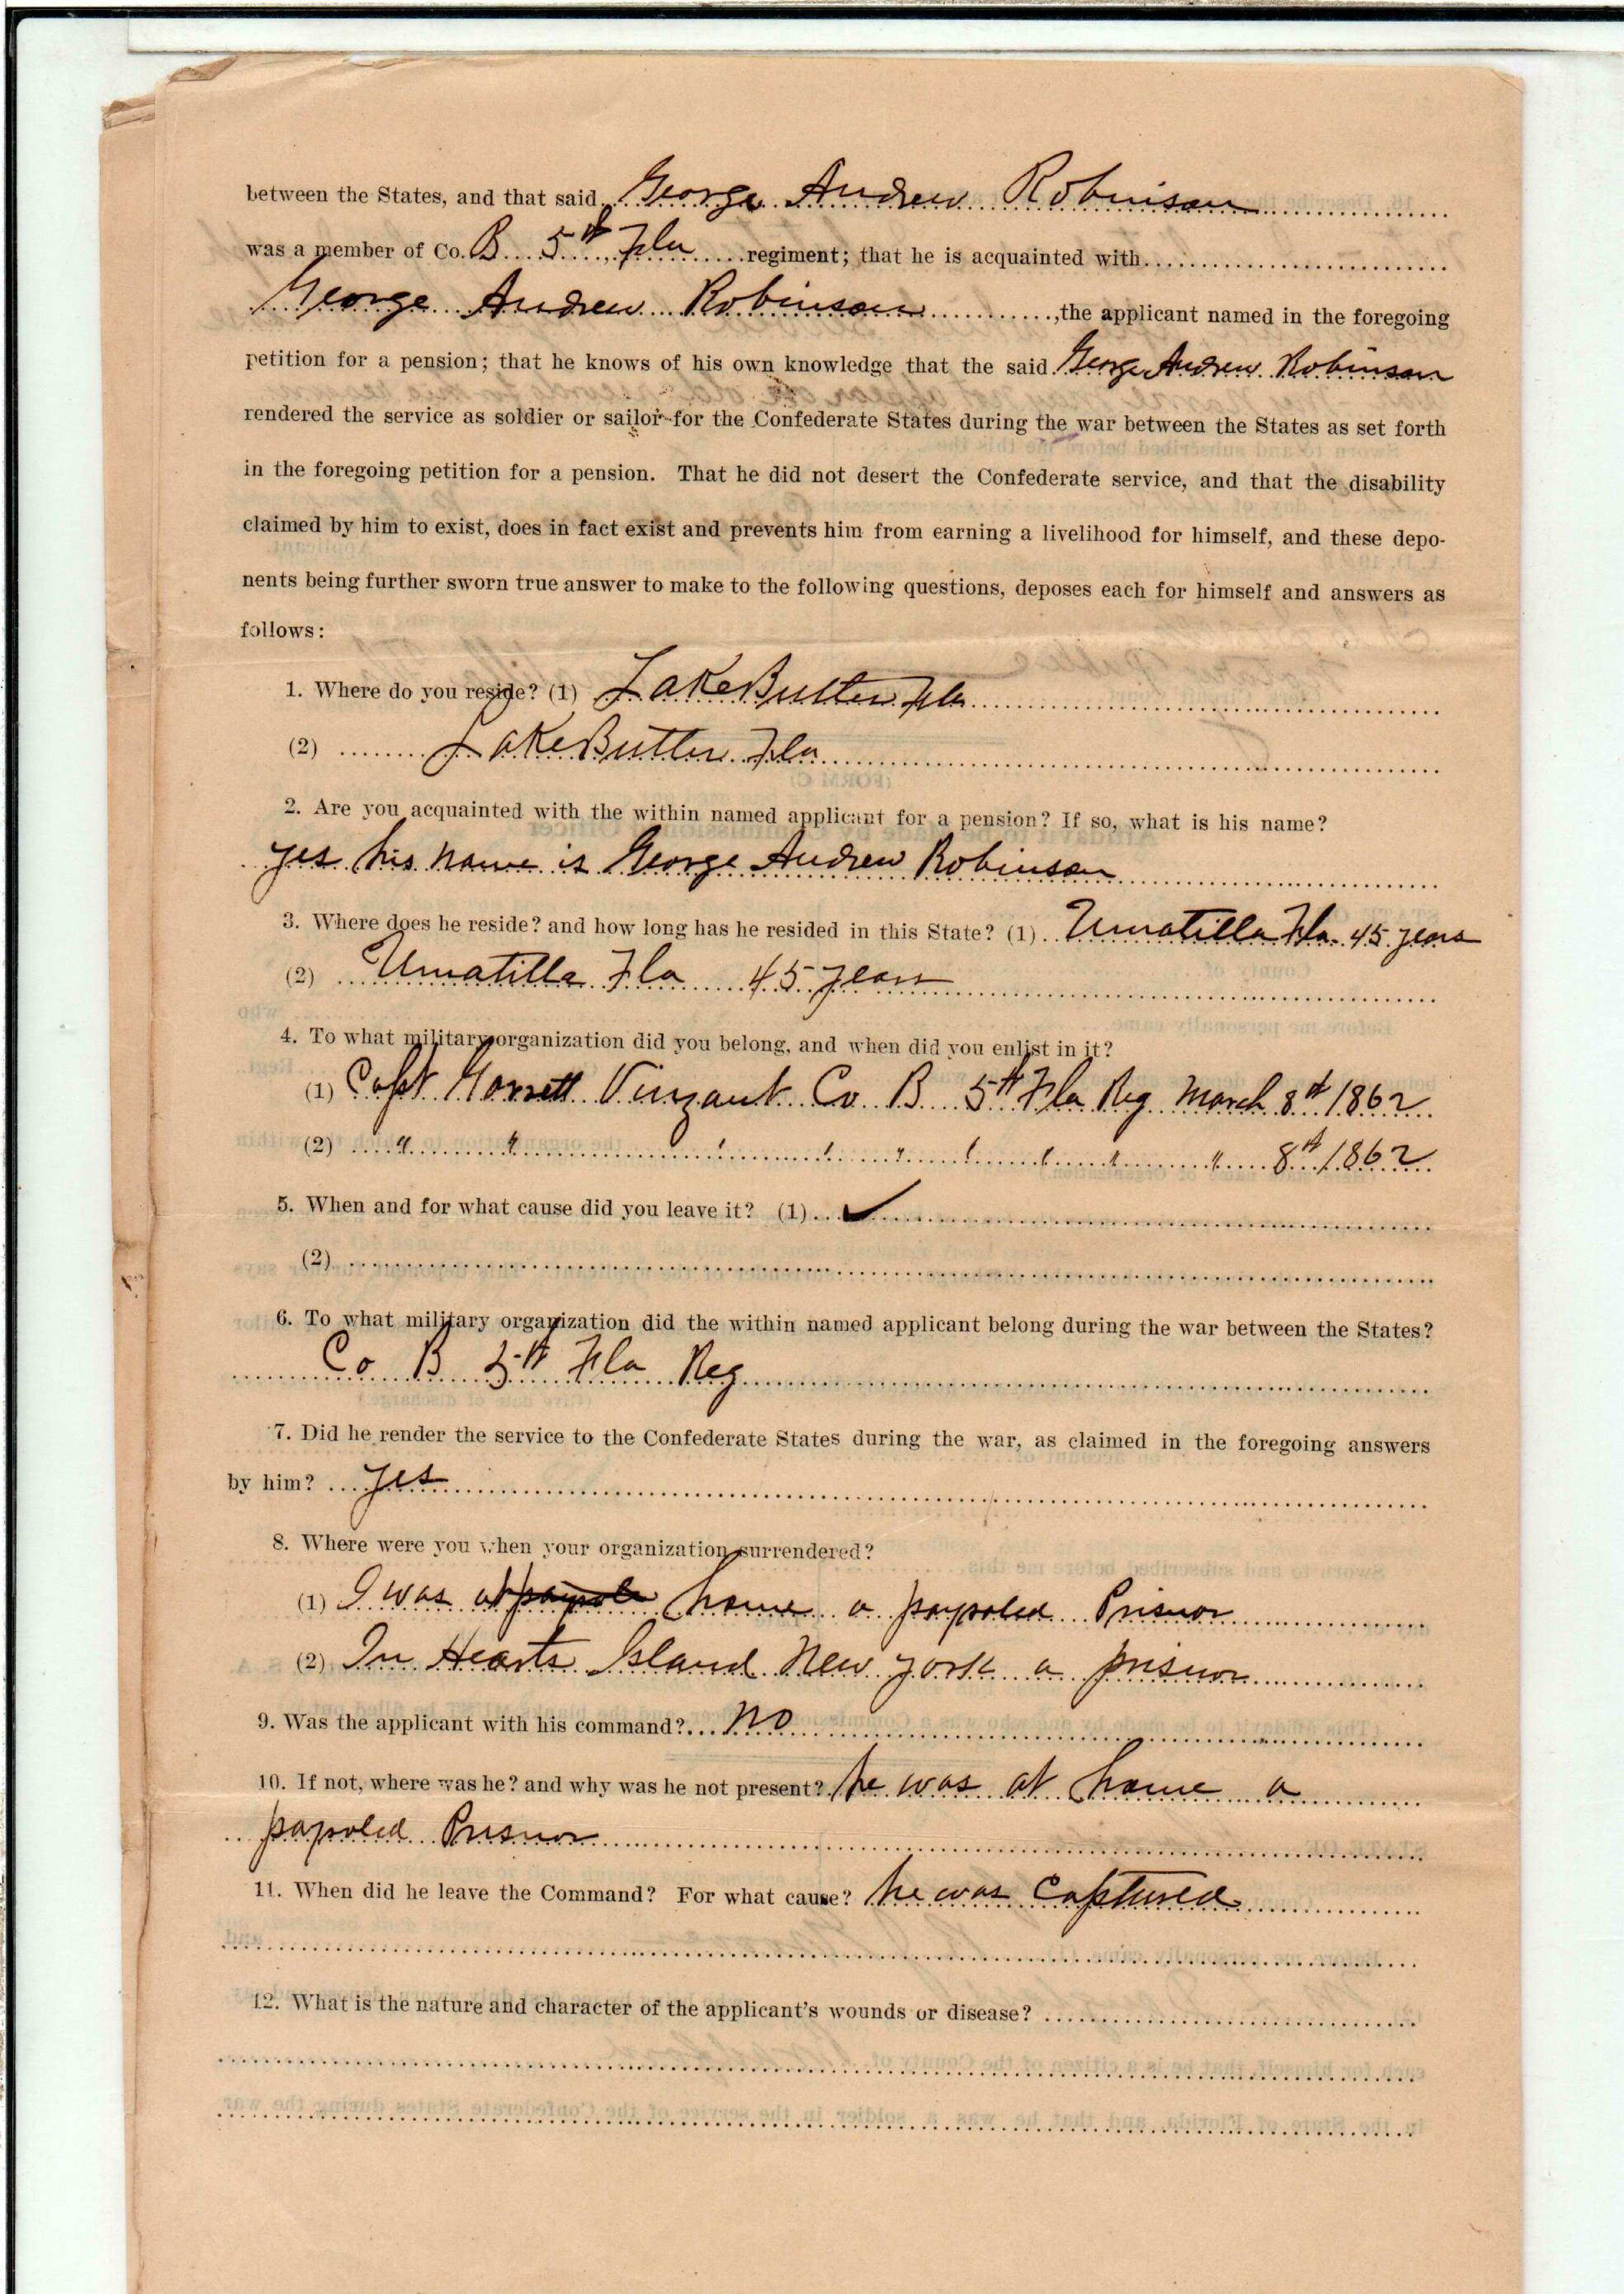 between the States, and that said George Andrew Robinson
was a member of Co. B 5th Fla regiment; that he is acquainted with
George Andrew Robinson, the applicant named in the foregoing
petition for a pension; that he knows of his own knowledge that the said George Andrew Robinson
rendered the service as soldier or sailor for the Confederate States during the war between the States as set forth
in the foregoing petition for a pension. That he did not desert the Confederate service, and that the disability
claimed by him to exist, does in fact exist and prevents him from earning a livelihood for himself, and these depo-
nents being further sworn true answer to make to the following questions, deposes each for himself and answers as
follows:
1. Where do you reside? (1) Lake Butler Fla
(2) Lake Butler Fla
2. Are you acquainted with the within named applicant for a pension? If so, what is his name?
yes his name is George Andrew Robinson
3. Where does he reside? and how long has he resided in this State? (1) Umatilla Fla. 45 years
(2) Umatilla Fla 45 years
4. To what military organization did you belong, and when did you enlist in it?
(1) Capt Vinzant Co B 5th Fla Reg March 8th 1862
(2) " " " " " " " " " 8th 1862
5. When and for what cause did you leave it? (1) ✓
(2)
6. To what military organization did the within named applicant belong during the war between the States?
Co B 5th Fla Reg
7. Did he render the service to the Confederate States during the war, as claimed in the foregoing answers
by him? yes
8. Where were you when your organization surrendered?
(1) I was at home a payroled Prisnor
(2) In Hearts Island New york a prisnor
9. Was the applicant with his command? No
10. If not, where was he? and why was he not present? he was at home a
payroled Prisnor
11. When did he leave the Command? For what cause? he was Captured
12. What is the nature and character of the applicant's wounds or disease?